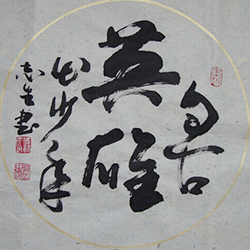 自古
英雄
出少年
志吉书